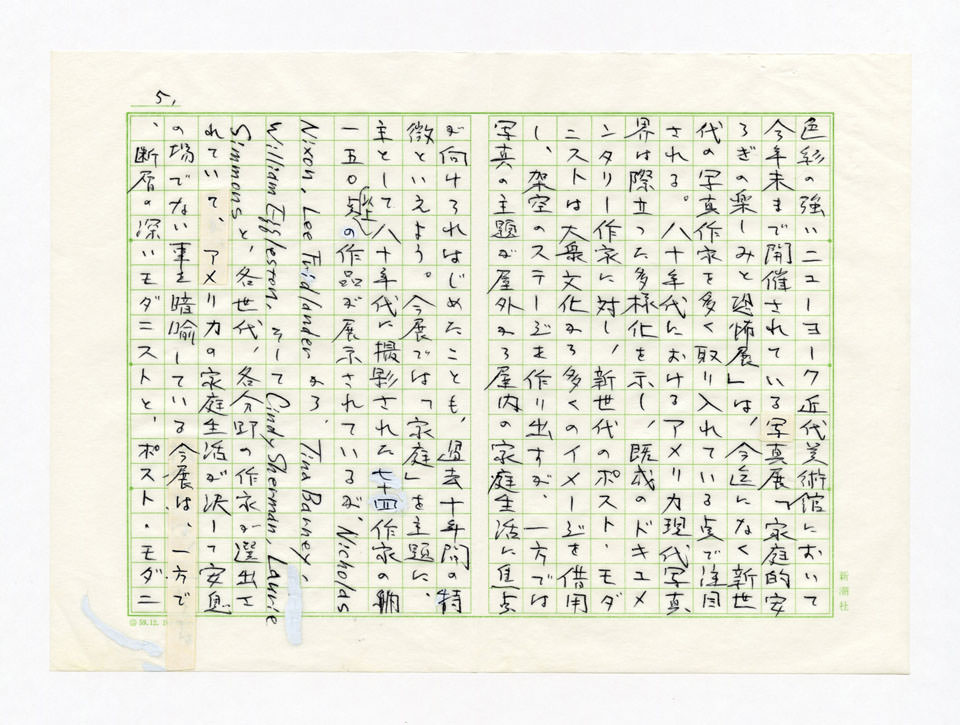 5.
色彩の強いニューヨーク近代美術館において
今年末まで開催されている写真展「家庭的安
ろぎの楽しみと恐怖展」は、今迄になく新世
代の写真作家を多く取り入れている点で注目
される。八十年代におけるアメリカ現代写真
界は際立った多様化を示し、既成のドキュメ
ンタリー作家に対し、新世代のポスト・モダ
ニストは大衆文化から多くのイメージを借用
し、架空のステージを作り出すが、一方では
写真の主題が屋外から屋内の家庭生活に焦点
が向けられはじめたことも、過去十年間の特
徴といえよう。今展では「家庭」を主題に、
主として八十年代に撮影された七十四作家の
一五〇点の作品が展示されているが、Nicholas
Nixon, Lee Friedlander から、Tina Barney,
William Eggleston, そして Cindy Sherman, Laurie
Simmons と、各世代、各分野の作家が選出さ
れていて、アメリカの家庭生活が決して安息
の場でない事を暗喩している今展は、一方で
、断層の深いモダニストと、ポスト・モダニ
新潮社